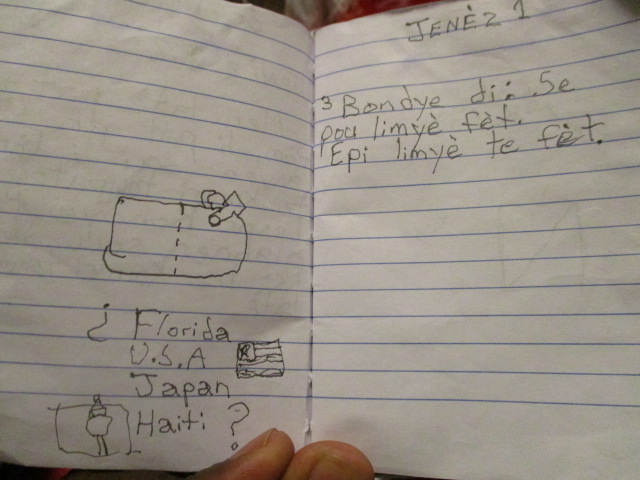 ¿ Florida
U.S.A
Japan
Haiti ?
JENÈZ 1
3 Bondye di: Se
pou limyè fèt.
Epi limyè te fèt.